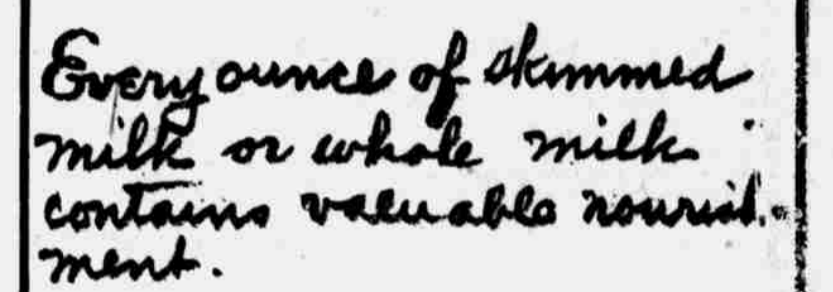 Every ounce of skimmed
milk or whole milk
contains valuable nourish-
ment.